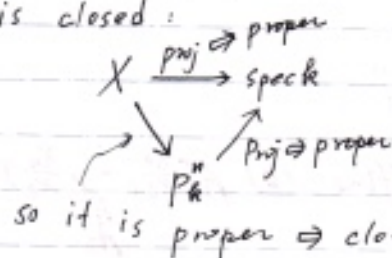 is closed :
proj ⇒ proper
X → spec k
proj ⇒ proper
P^n_k
so it is proper ⇒ clo